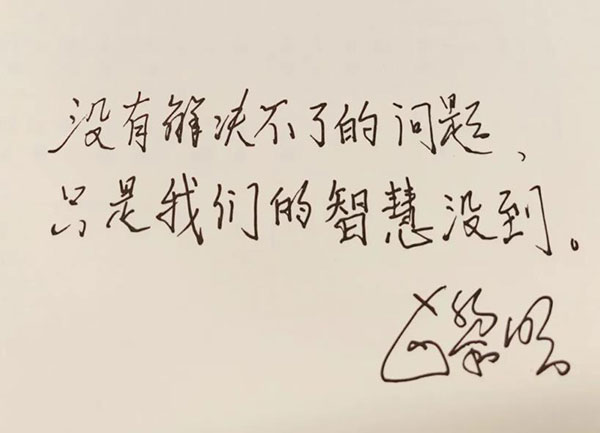 没有解决不了的问题、
只是我们的智慧没到。
赵黎明